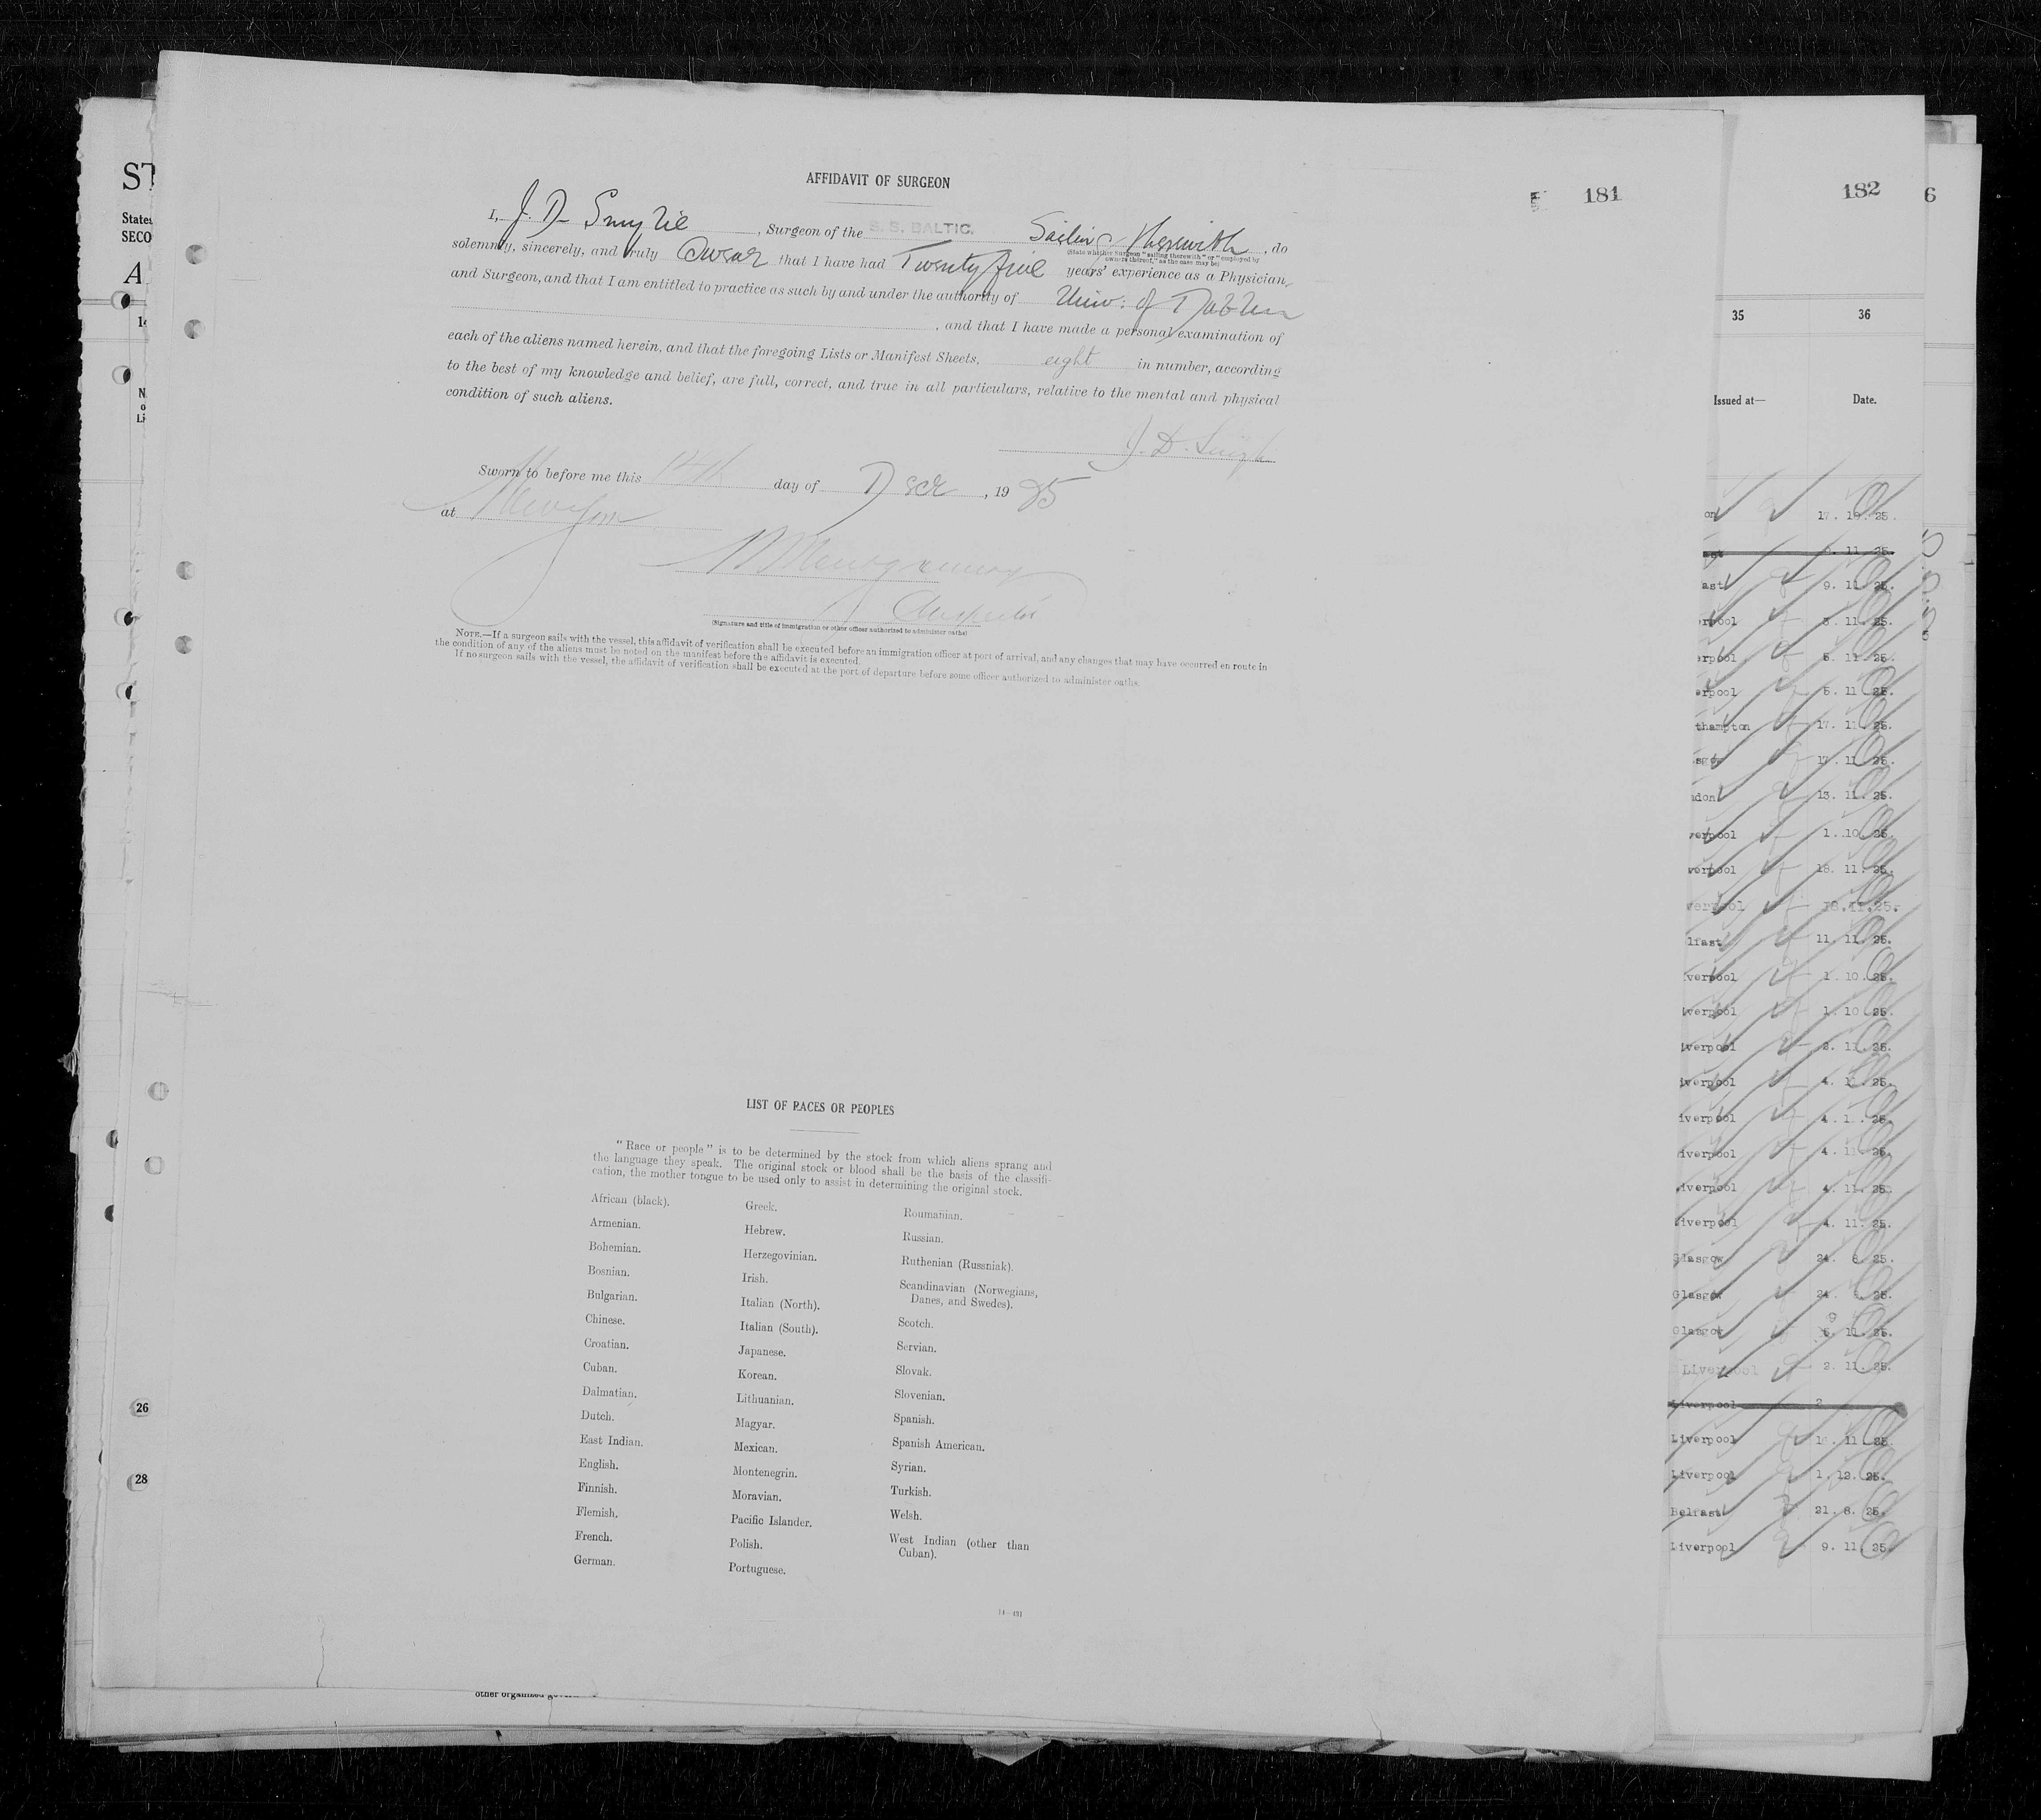 AFFIDAVIT OF SURGEON
181
182
6
ST
States
SECO
A
I, J. D. Smylie, Surgeon of the S. S. BALTIC. Sailing therewith, do
(State whether Surgeon "sailing therewith" or "employed by
owners thereof," as the case may be)
solemnly, sincerely, and truly Swear that I have had Twenty five years' experience as a Physician
and Surgeon, and that I am entitled to practice as such by and under the authority of Univ: of Dublin
, and that I have made a personal examination of
each of the aliens named herein, and that the foregoing Lists or Manifest Sheets, eight in number, according
to the best of my knowledge and belief, are full, correct, and true in all particulars, relative to the mental and physical
condition of such aliens.
Sworn to before me this 14th day of Decr, 1925
at New York
Inspector
(Signature and title of immigration or other officer authorized to administer oaths)
NOTE.—If a surgeon sails with the vessel, this affidavit of verification shall be executed before an immigration officer at port of arrival, and any changes that may have occurred en route in
the condition of any of the aliens must be noted on the manifest before the affidavit is executed.
If no surgeon sails with the vessel, the affidavit of verification shall be executed at the port of departure before some officer authorized to administer oaths.
LIST OF RACES OR PEOPLES
"Race or people" is to be determined by the stock from which aliens sprang and
the language they speak. The original stock or blood shall be the basis of the classifi-
cation, the mother tongue to be used only to assist in determining the original stock.
African (black).
Armenian.
Bohemian.
Bosnian.
Bulgarian.
Chinese.
Croatian.
Cuban.
Dalmatian.
Dutch.
East Indian.
English.
Finnish.
Flemish.
French.
German.
Greek.
Hebrew.
Herzegovinian.
Irish.
Italian (North).
Italian (South).
Japanese.
Korean.
Lithuanian.
Magyar.
Mexican.
Montenegrin.
Moravian.
Pacific Islander.
Polish.
Portuguese.
Roumanian.
Russian.
Ruthenian (Russniak).
Scandinavian (Norwegians,
Danes, and Swedes).
Scotch.
Servian.
Slovak.
Slovenian.
Spanish.
Spanish American.
Syrian.
Turkish.
Welsh.
West Indian (other than
Cuban).
26
28
35 36
Issued at— Date.
on 17. 10. 25.
ast 11. 25.
ast 9. 11. 25.
erpool 3. 11. 25.
erpool 5. 11. 25.
erpool 5. 11. 25.
thampton 17. 11. 25.
sgow 17. 11. 25.
ndon 13. 11. 25.
verpool 1. 10. 25.
verpool 18. 11. 25.
verpool 18. 11. 25.
lfast 11. 11. 25.
verpool 1. 10. 25.
iverpool 1. 10. 25.
iverpool 2. 11. 25.
iverpool 4. 11. 25.
iverpool 4. 11. 25.
iverpool 4. 11. 25.
iverpool 4. 11. 25.
Liverpool 4. 11. 25.
Glasgow 24. 8. 25.
Glasgow 24. 25.
Glasgow 11. 25.
Liverpool 2. 11. 25.
Liverpool 2
Liverpool 11. 25.
Liverpool 1. 12. 25.
Belfast 21. 8. 25.
Liverpool 9. 11. 25.